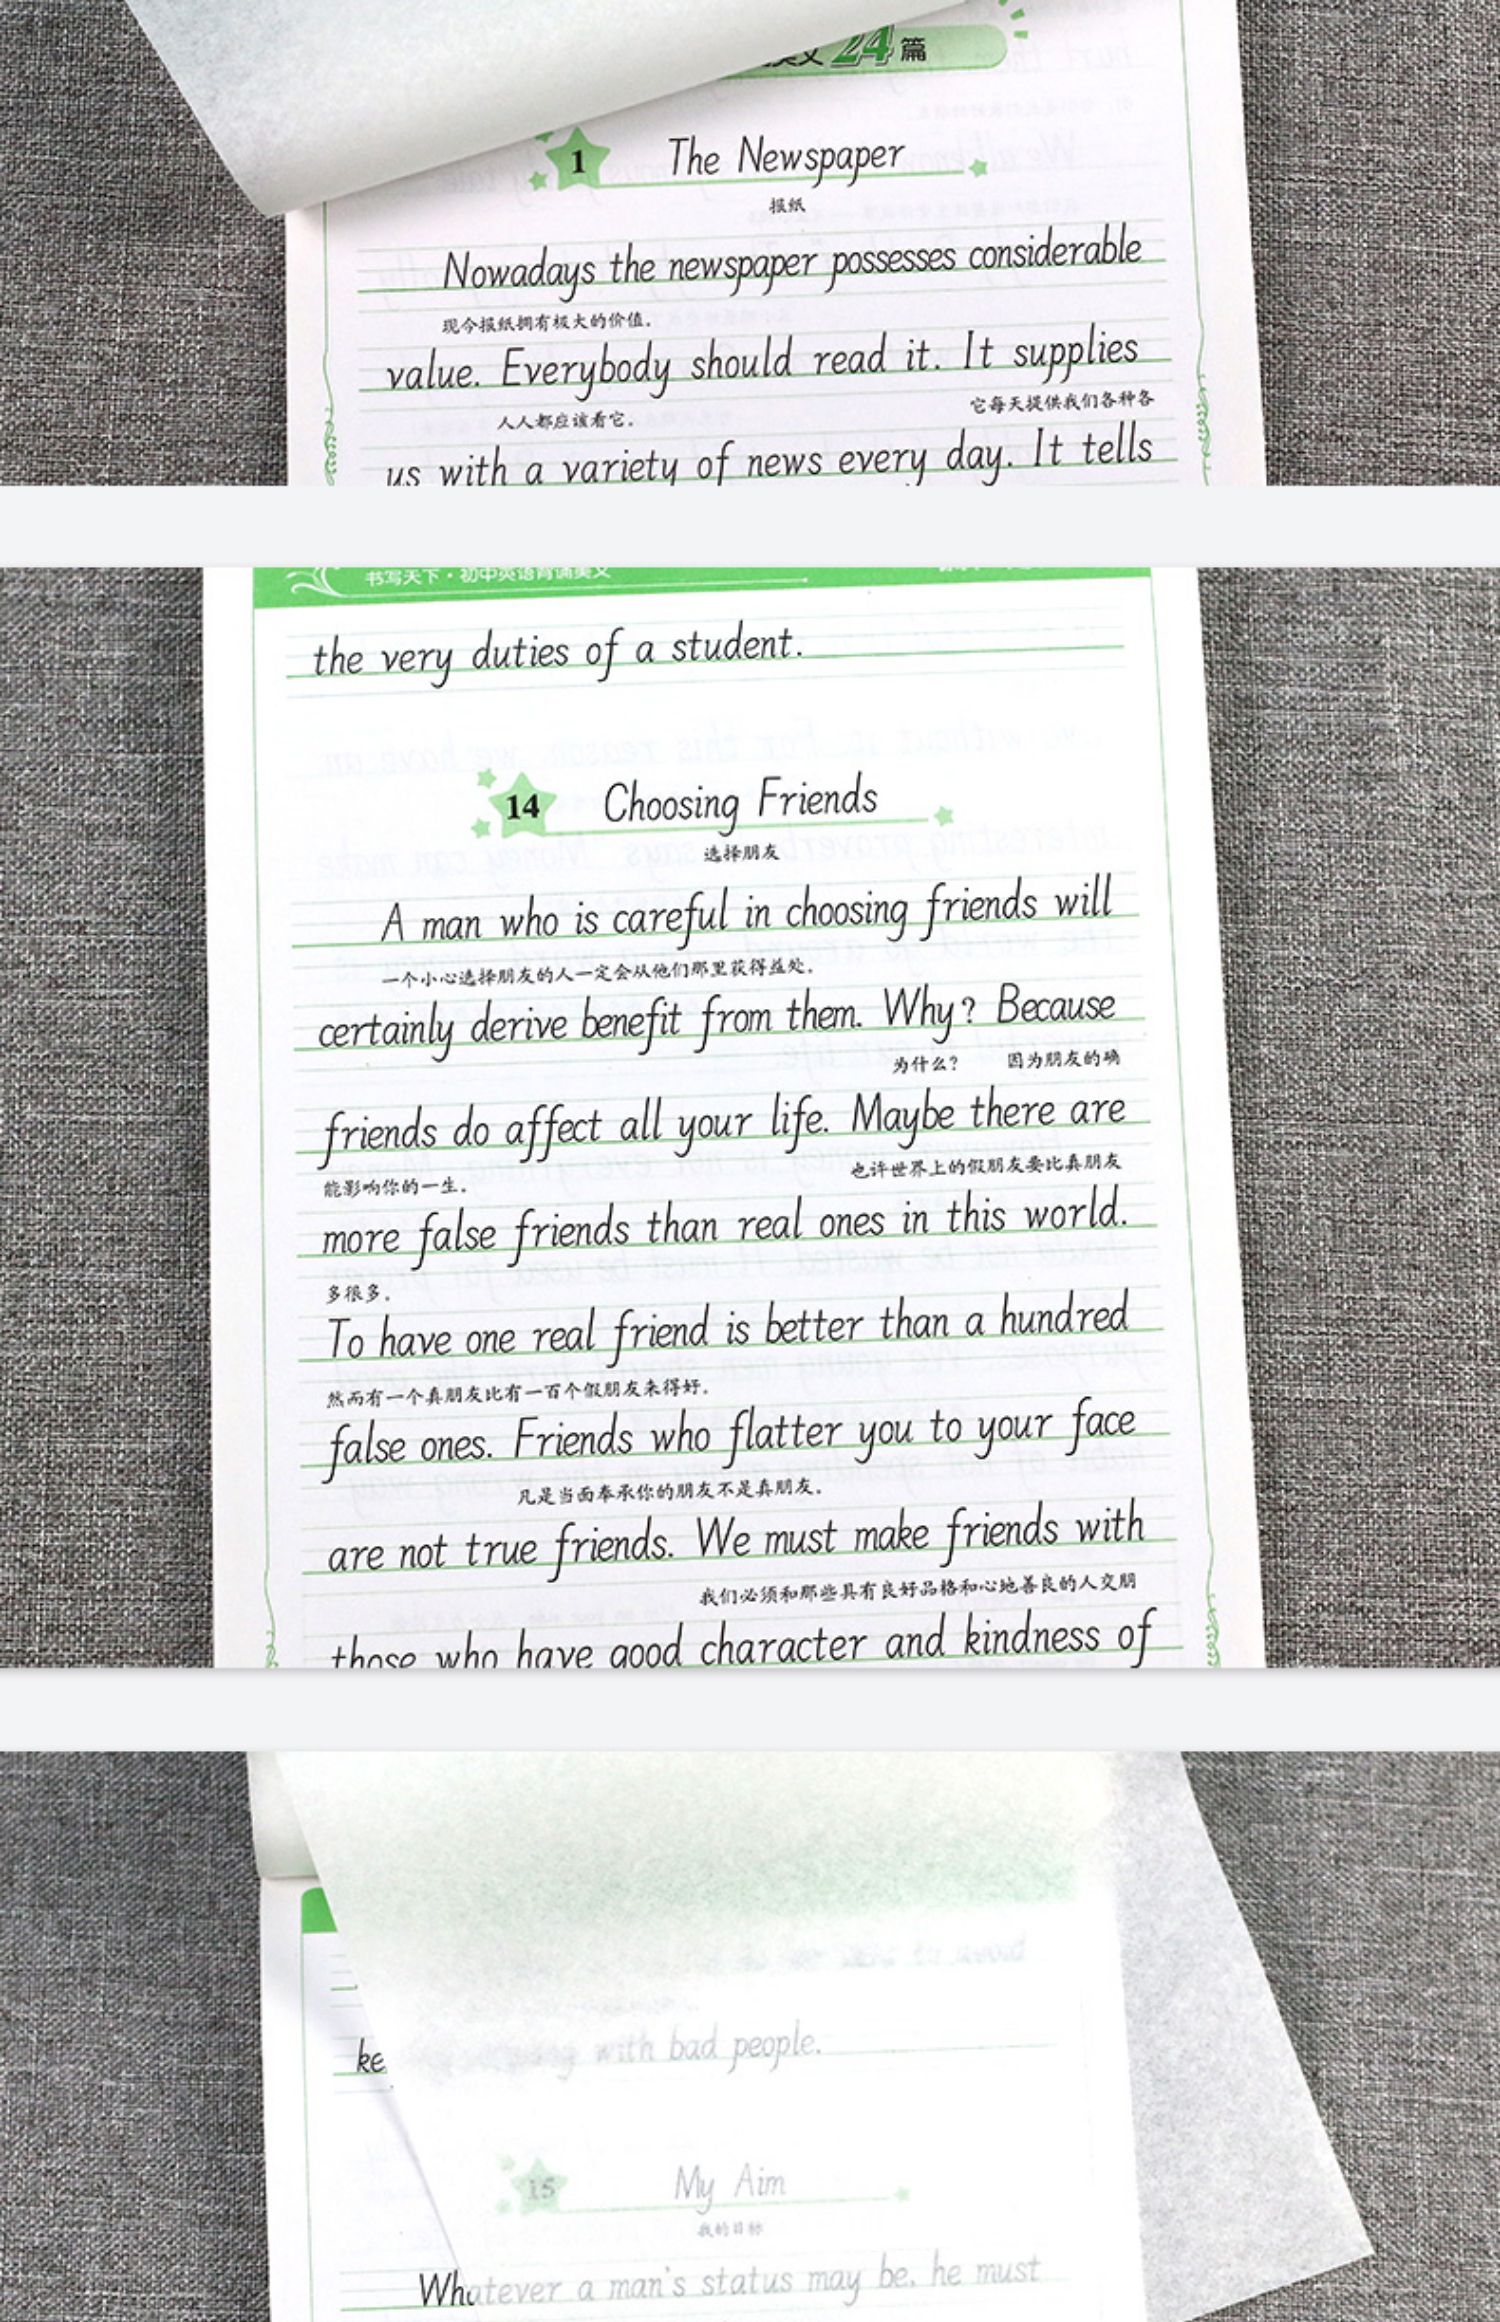 24篇
1 The Newspaper
报纸
Nowadays the newspaper possesses considerable
现今报纸拥有极大的价值。
value. Everybody should read it. It supplies
人人都应该看它。 它每天提供我们各种各
us with a variety of news every day. It tells
书写天下·初中英语背诵美文
the very duties of a student.
14 Choosing Friends
选择朋友
A man who is careful in choosing friends will
一个小心选择朋友的人一定会从他们那里获得益处。
certainly derive benefit from them. Why? Because
为什么? 因为朋友的确
friends do affect all your life. Maybe there are
能影响你的一生。 也许世界上的假朋友要比真朋友
more false friends than real ones in this world.
多很多。
To have one real friend is better than a hundred
然而有一个真朋友比有一百个假朋友来得好。
false ones. Friends who flatter you to your face
凡是当面奉承你的朋友不是真朋友。
are not true friends. We must make friends with
我们必须和那些具有良好品格和心地善良的人交朋
those who have good character and kindness of
to avoid
ke with bad people.
15 My Aim
我的目标
Whatever a man's status may be, he must